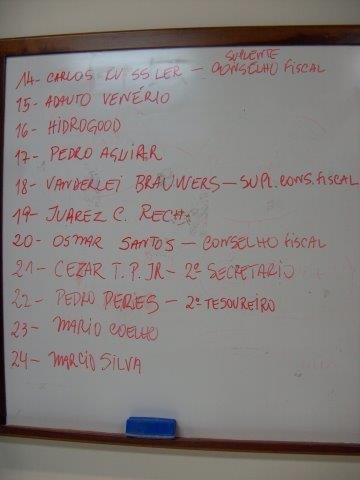 SUPLENTE
14- CARLOS RUSSLER - CONSELHO FISCAL
15- ADAUTO VENÉRIO
16- HIDROGOOD
17- PEDRO AGUIAR
18- VANDERLEI BRAUWERS - SUPL. CONS. FISCAL
19- JUAREZ C. RECH
20- OSMAR SANTOS - CONSELHO FISCAL
21- CEZAR T. P. JR - 2º SECRETARIO
22- PEDRO PERIES - 2º TESOUREIRO
23- MARIO COELHO
24- MARCIO SILVA